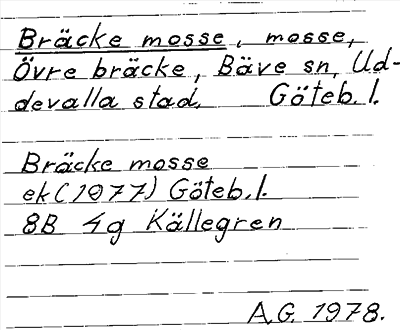 Bräcke mosse, mosse,
Övre bräcke, Bäve sn, Ud-
devalla stad. Göteb. l.
Bräcke mosse
ek (1977) Göteb. l.
8B 4g Källegren
A.G. 1978.